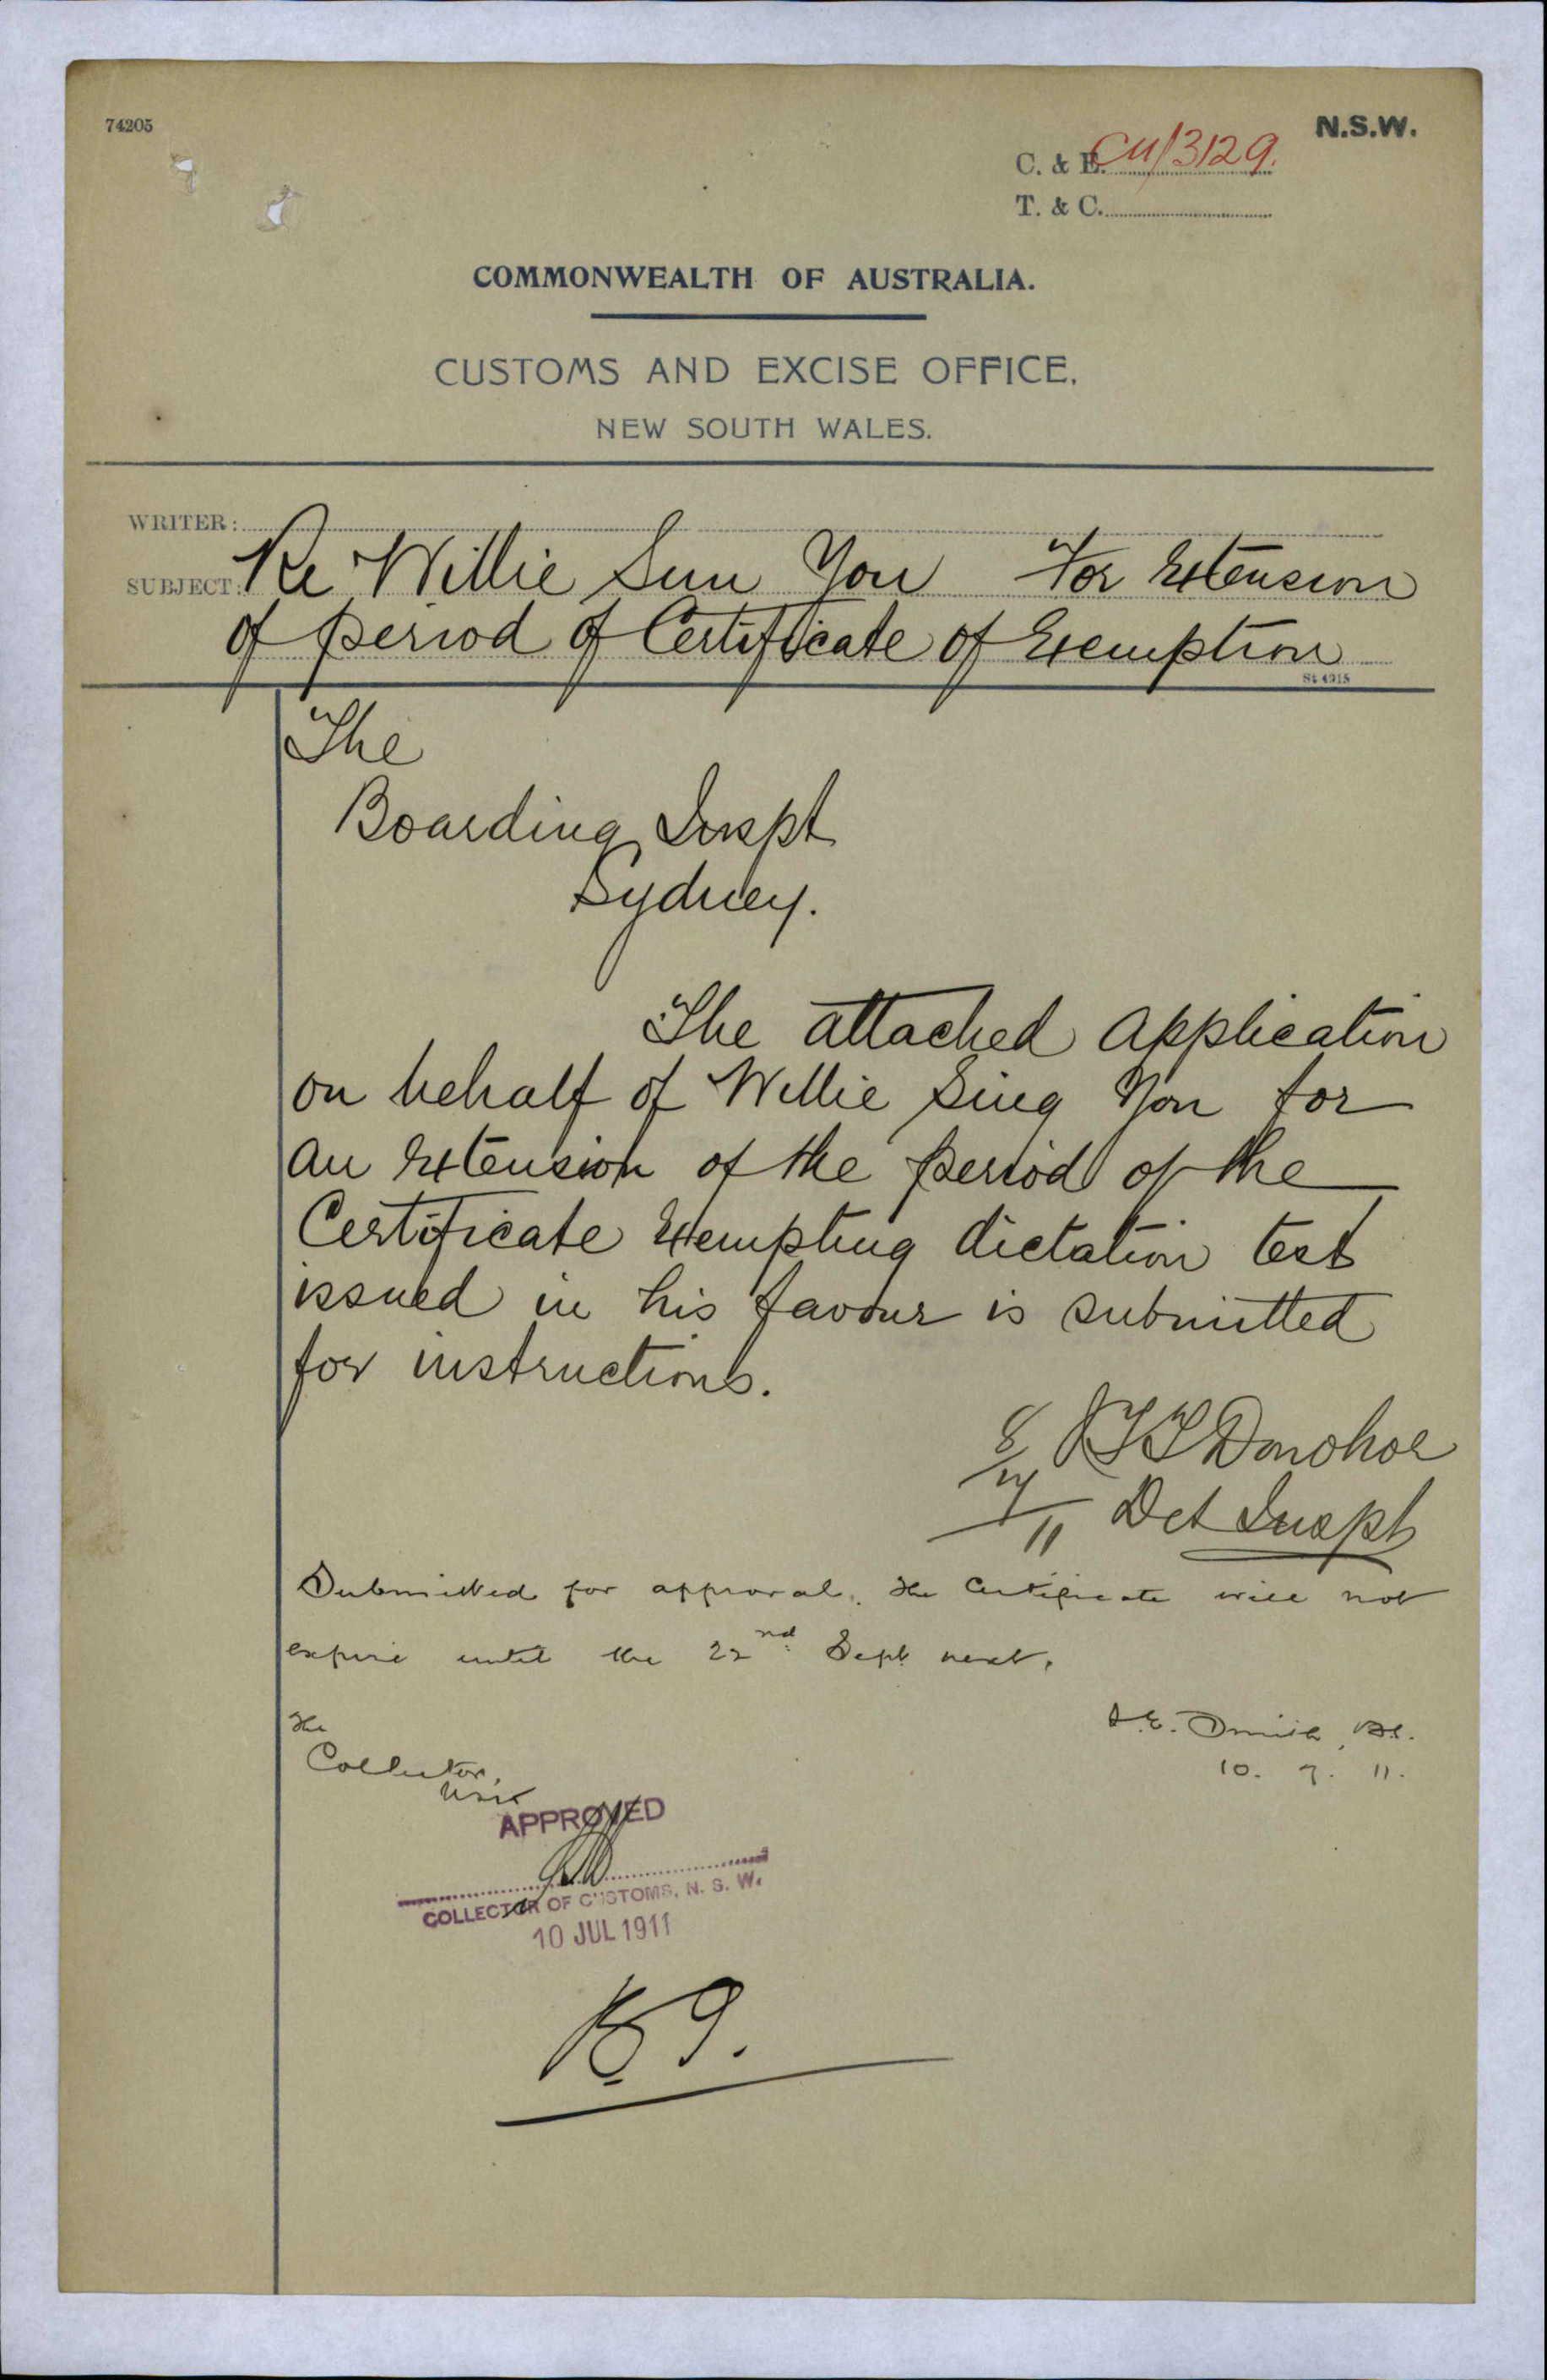 74205
N.S.W.
C. & E. C11/3129.
T. & C.
COMMONWEALTH OF AUSTRALIA.
CUSTOMS AND EXCISE OFFICE,
NEW SOUTH WALES.
WRITER:
SUBJECT: Re Willie Sun You For Extension
of period of Certificate of Exemption
St 4915
The
Boarding Inspt
Sydney.
The attached application
on behalf of Willie Sing You for
an extension of the period of the
Certificate Exempting dictation test
issued in his favour is submitted
for instructions.
8/7/11 JTT Donohoe
Det Inspt
Submitted for approval. The Certificate will not
expire until the 22nd Sept. next.
The
Collector,
NSW
Smith, B.I.
10. 7. 11.
APPROVED
COLLECTOR OF CUSTOMS, N. S. W.
10 JUL 1911